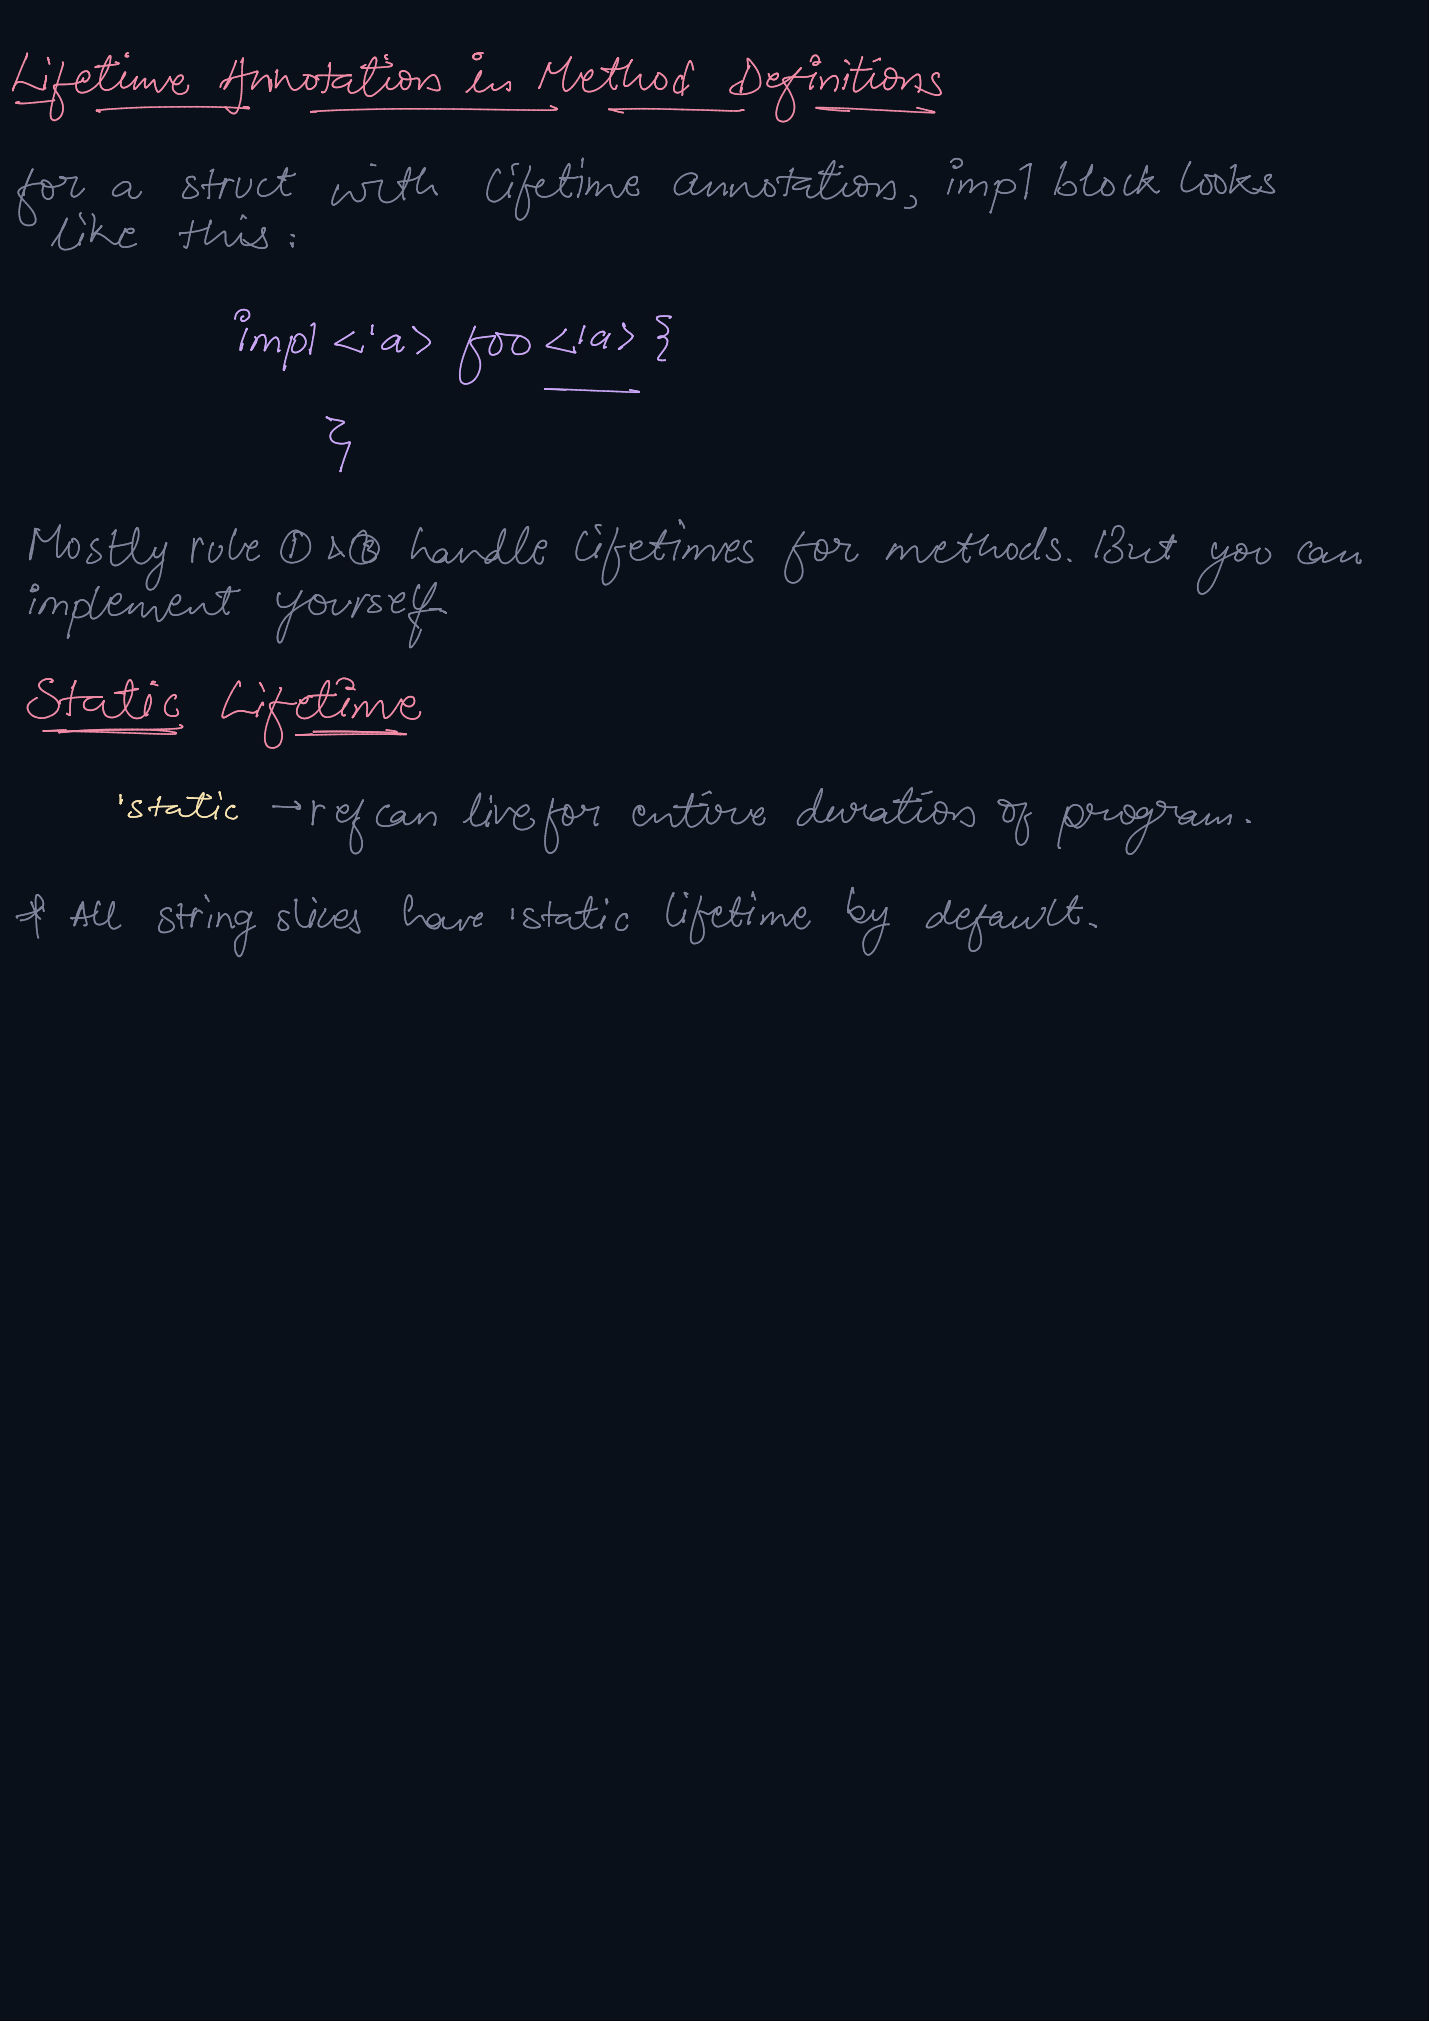 Lifetime Annotation in Method Definitions
for a struct with lifetime annotation, impl block looks
like this:
impl <'a> foo <'a> {
}
Mostly rule ① & ③ handle lifetimes for methods. But you can
implement yourself
Static Lifetime
'static → ref can live for entire duration of program.
* All string slices have 'static lifetime by default.